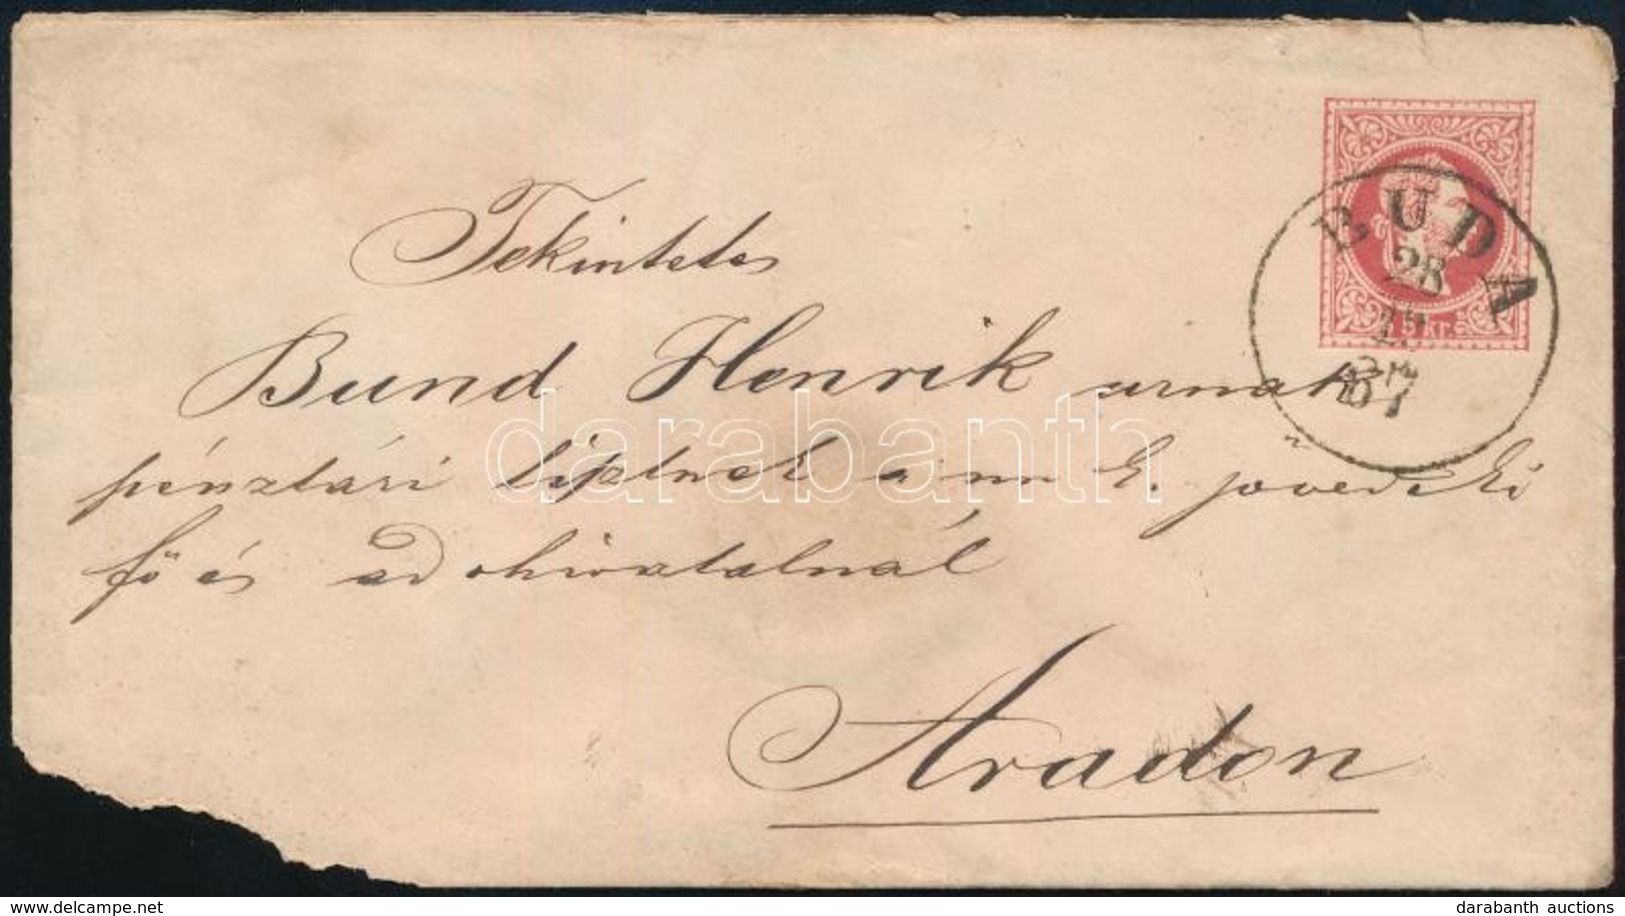 Tekintetes
Bund Henrik urnak
pénztári a m k. jövedéki
fő és adóhivatalnál
Aradon
BUDA
28
12
67
5 KR.
darabanth
www.delcampe.net
darabanth auctions